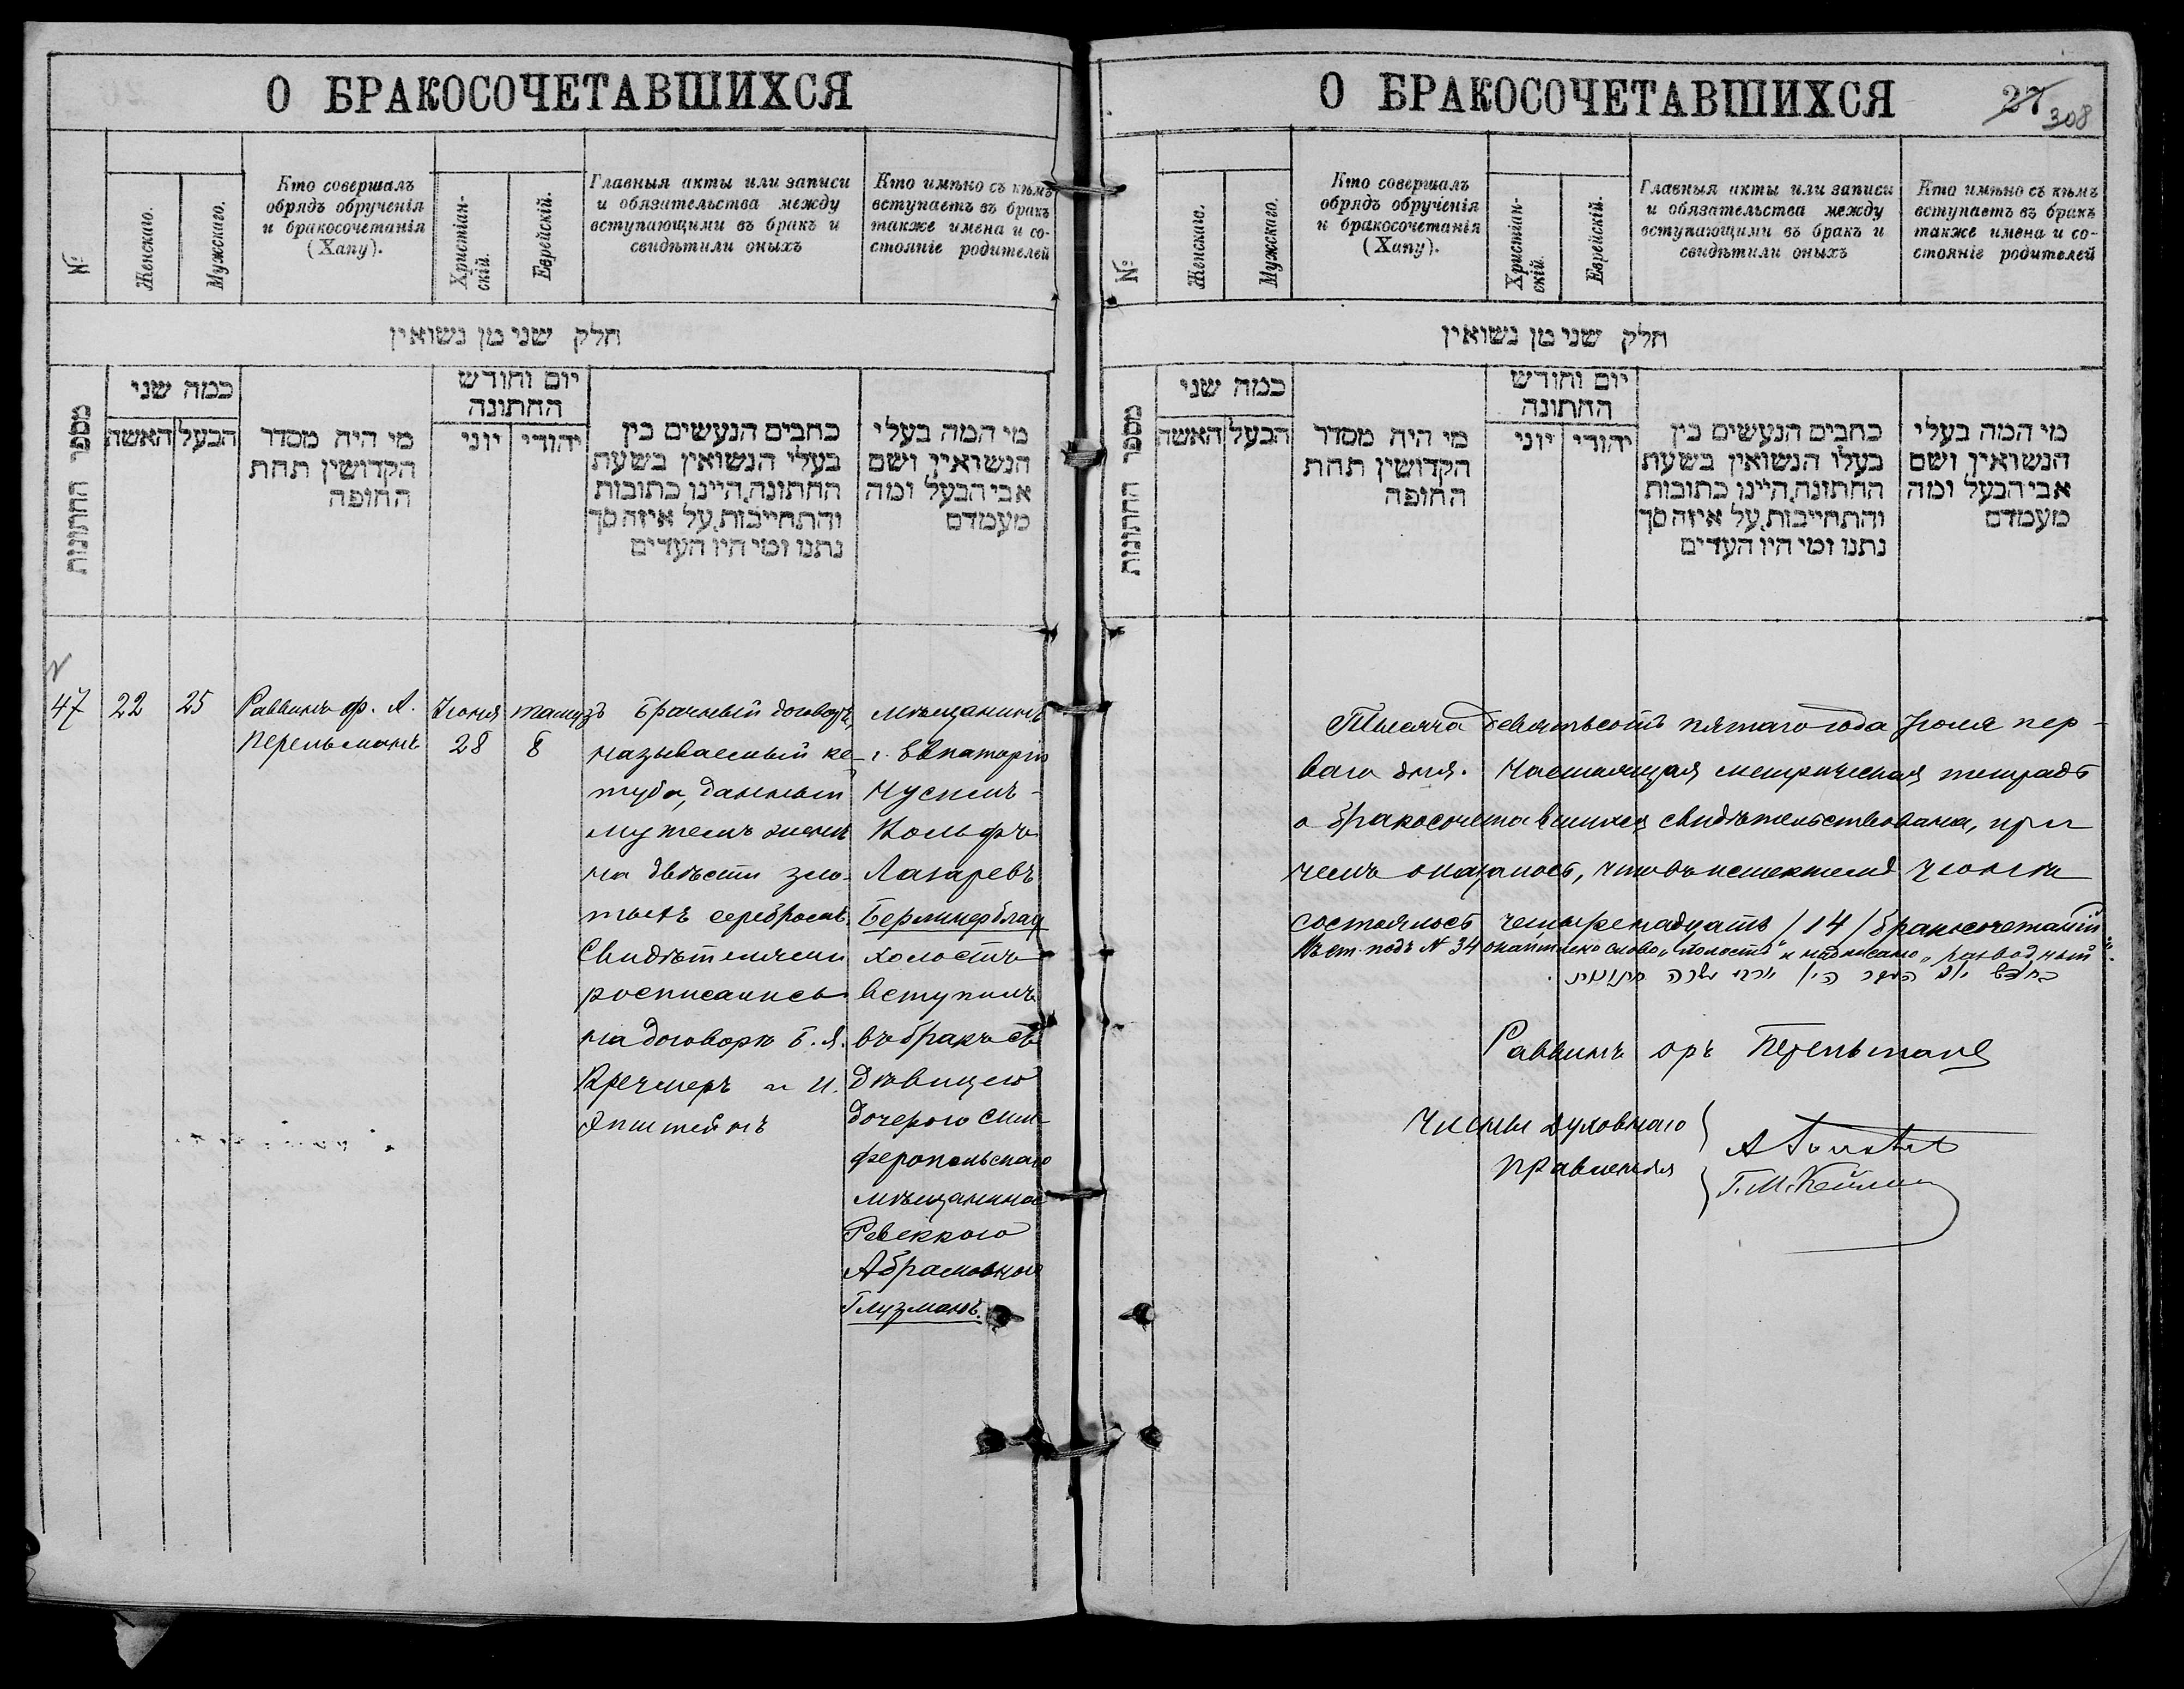 О БРАКОСОЧЕТАВШИХСЯ
№
Женскаго.
Мужскаго.
Кто совершалъ
обрядъ обрученія
и бракосочетанія
(Хапу).
Христіан-
скій.
Еврейскій.
Главныя акты или записи
и обязательства между
вступающими въ бракъ и
свидѣтили оныхъ
Кто имѣно съ кѣмъ
вступаетъ въ бракъ
также имена и со-
стояніе родителей
חלק שני מן נשואין
מספר החתונות
כמה שני
האשה
הבעל
מי היה מסדר
הקדושין תחת
החופה
יום וחודש
החתונה
יוני
יהודי
כתבים הנעשים בין
בעלי הנשואין בשעת
החתונה, היינו כתובות
והתחייבות, על איזה סך
נתנו ומי היו העדים
מי המה בעלי
הנשואין ושם
אבי הבעל ומה
מעמדם
47
22
25
Раввинъ ф. А.
Перельманъ
Іюня
28
тамузъ
8
Брачный договоръ,
называемый ке-
туба, данный
мужемъ женѣ
на двѣсти зло-
тыхъ серебромъ.
Свидѣтелями
росписались
на договорѣ Б. Я.
Кречмеръ и И.
Эпштейнъ
мѣщанинъ
г. Евпаторіи
Нусимъ-
Вольфъ
Лазаревъ
Берлинерблау
холостъ
вступилъ
въ бракъ съ
дѣвицею
дочерью сим-
феропольскаго
мѣщанина
Ревеккою
Абрамовною
Глузманъ.
О БРАКОСОЧЕТАВШИХСЯ
27
308
№
Женскаго.
Мужскаго.
Кто совершалъ
обрядъ обрученія
и бракосочетанія
(Хапу).
Христіан-
скій.
Еврейскій.
Главныя акты или записи
и обязательства между
вступающими въ бракъ и
свидѣтили оныхъ
Кто имѣно съ кѣмъ
вступаетъ въ бракъ
также имена и со-
стояніе родителей
חלק שני מן נשואין
מספר החתונות
כמה שני
האשה
הבעל
מי היה מסדר
הקדושין תחת
החופה
יום וחודש
החתונה
יוני
יהודי
כתבים הנעשים בין
בעלי הנשואין בשעת
החתונה, היינו כתובות
והתחייבות, על איזה סך
נתנו ומי היו העדים
מי המה בעלי
הנשואין ושם
אבי הבעל ומה
מעמדם
Тысяча девятьсотъ пятаго года Іюля пер-
ваго дня. Настоящая метрическая тетрадь
о бракосочетавшихся свидѣтельствована, при
чемъ оказалось, что въ истекшемъ Іюнѣ
состоялось четыренадцать /14/ бракосочетаній
Въ ст. подъ № 34 слово „холостъ" и надписано „разводный".
Раввинъ Перельманъ
Члены Духовнаго
Правленія